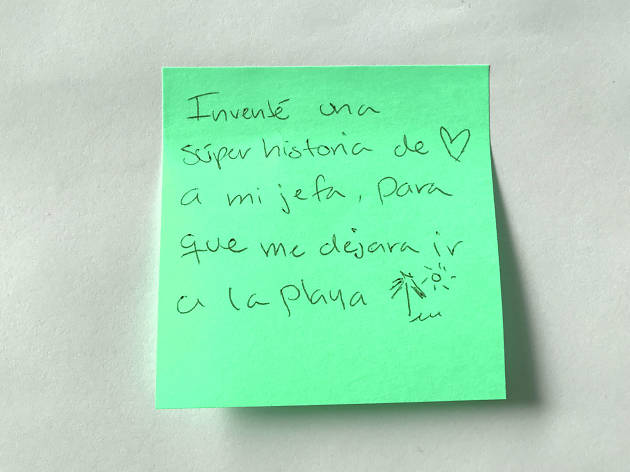 Inventé una
súper historia de ♡
a mi jefa, para
que me dejara ir
a la playa